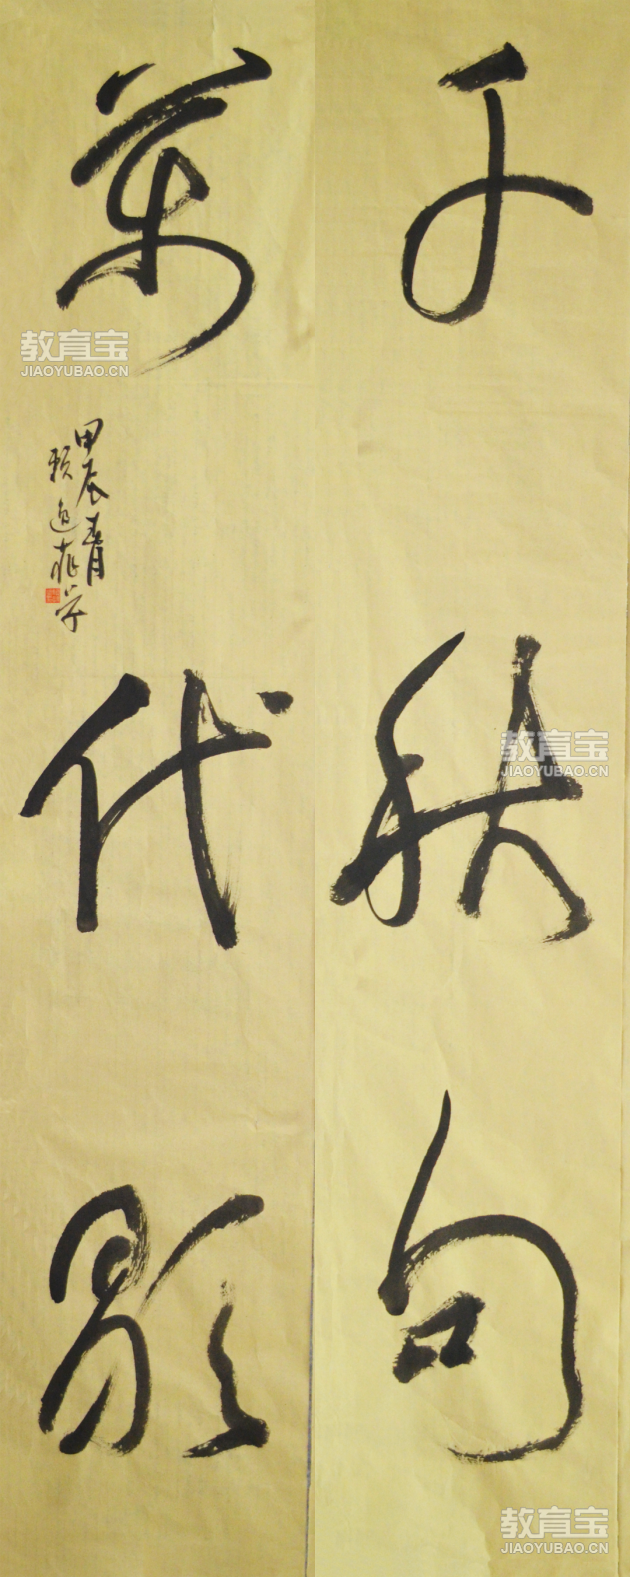 千秋句
萬代歌
甲辰
教育宝
JIAOYUBAO.CN
教育宝
JIAOYUBAO.CN
教育宝
JIAOYUBAO.CN